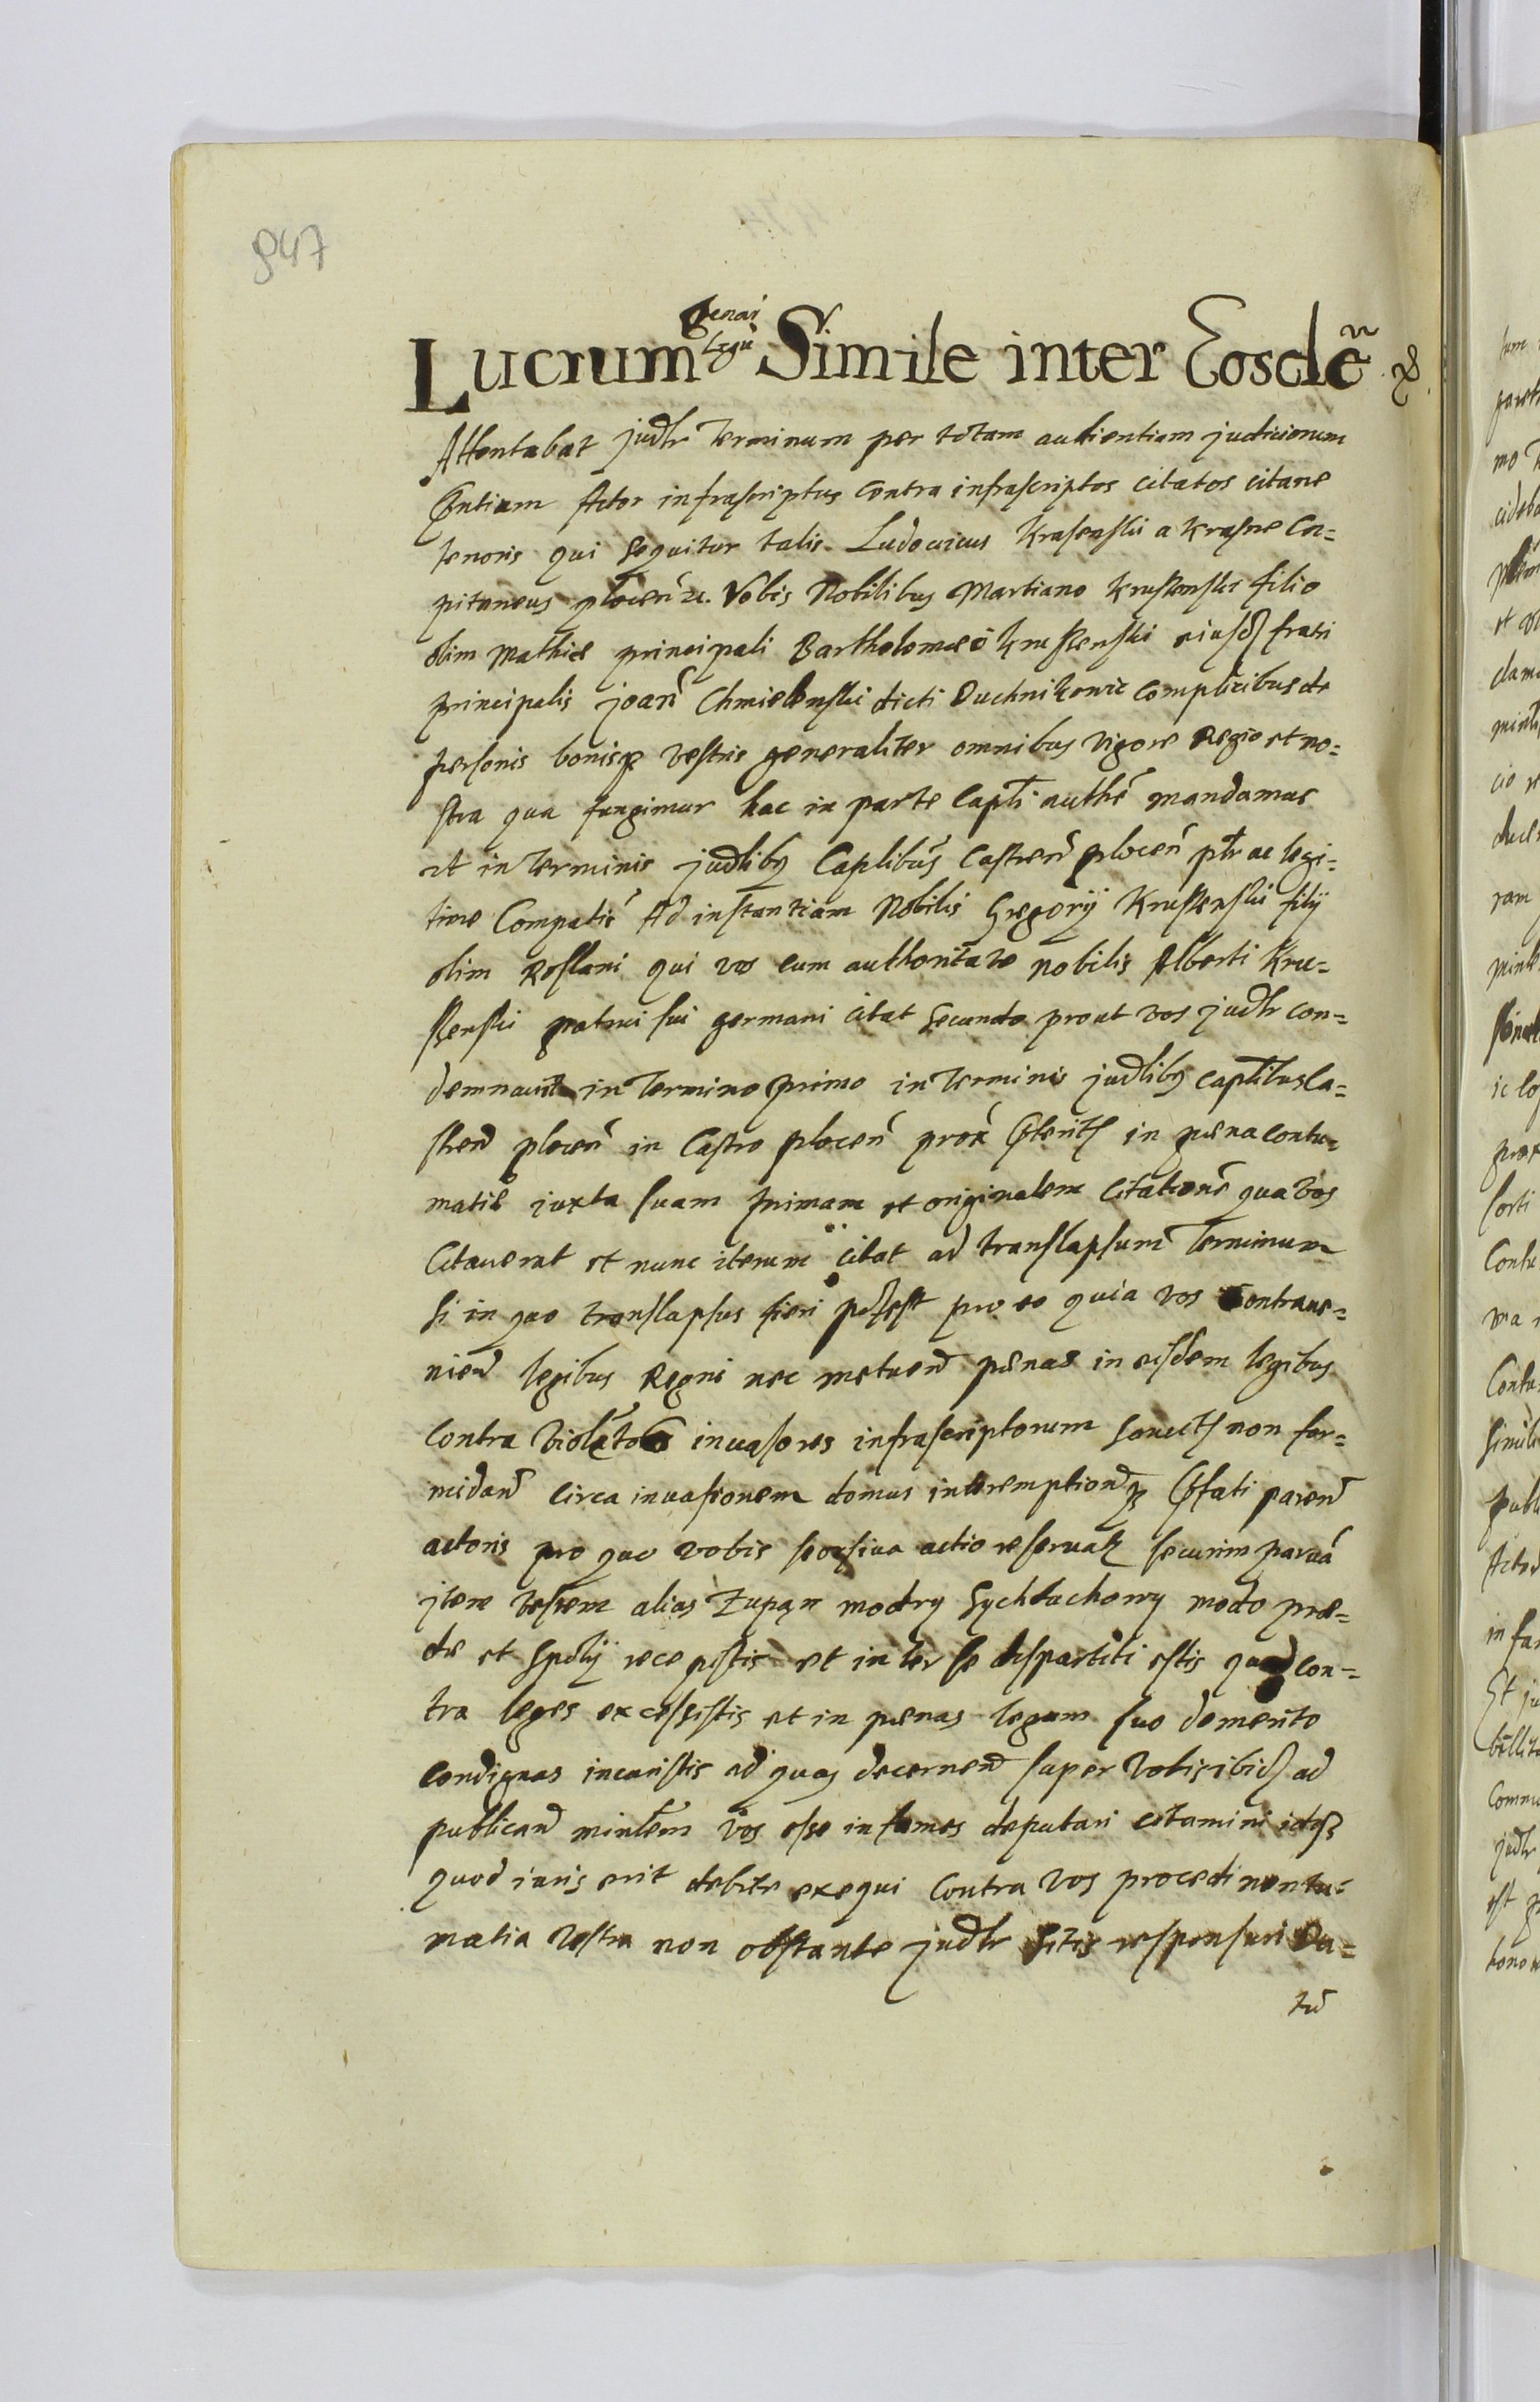 947
Lucrum Simile inter Eosdē
Attentabat judlr Terminum per totam audientiam judiciorum
pntium Actor infrascriptus contra infrascriptos citatos citane
tenoris qui sequitur talis. Ludovicus Krasenski a Krasne Ca=
pitaneus plocen̄ &c. Vobis Nobilibus Martiano Kruszenski filio
olim Mathiæ principali Bartholomeo Kruszenski eiusd frati
principalis joan̄ Chmielenski dicti Duchnikowic complicibus de
personis bonisq vestris generaliter omnibus vigore Regio et no=
stra qua fungimur hac in parte Capli authē mandamus
ut in Terminis judlibq Caplibus Castren̄ plocen̄ ptr ac legi=
time Compatis Ad instantiam Nobilis Gregorij Kruszenski filij
olim Roslani qui vos cum authoritate nobilis Alberti Kru=
szenski patrui sui germani citat Secundo prout vos judlr con=
demnavit in Termino primo in Terminis judlibq captlibus Ca=
stren̄ plocen̄ in Castro plocen̄ prox pterits in pæna contu=
matiæ iuxta suam primam et originalem Citationē qua vos
Citaverat et nunc iterum citat ad translapsum Terminum
si in quo translapsus fieri potest pro eo quia vos Contrave=
nien̄ legibus Regni nec metuen̄ pænas in eisdem legibus
contra violatores invasores infrascriptorum sancits non for=
midan̄ circa invasionem domus interemptionqz pfati paren̄
actoris pro quo vobis seorsiva actio reservatz securim parvā
jtem vestem alias Zupan modry Sychtuchowy modo præ=
dæ et spolij recepistis et inter se dispartiti estis quod con=
tra leges excessistis et in pænas legum suo demerito
condignas incuristis ad quas decernen̄ super vobis ibid ad
publican̄ minlem vos esse infames deputari citamini idqz
quod iuris erit debite exequi Contra vos procedi contu=
matia vestra non obstante judlr Sitis responsuri Da=
tū